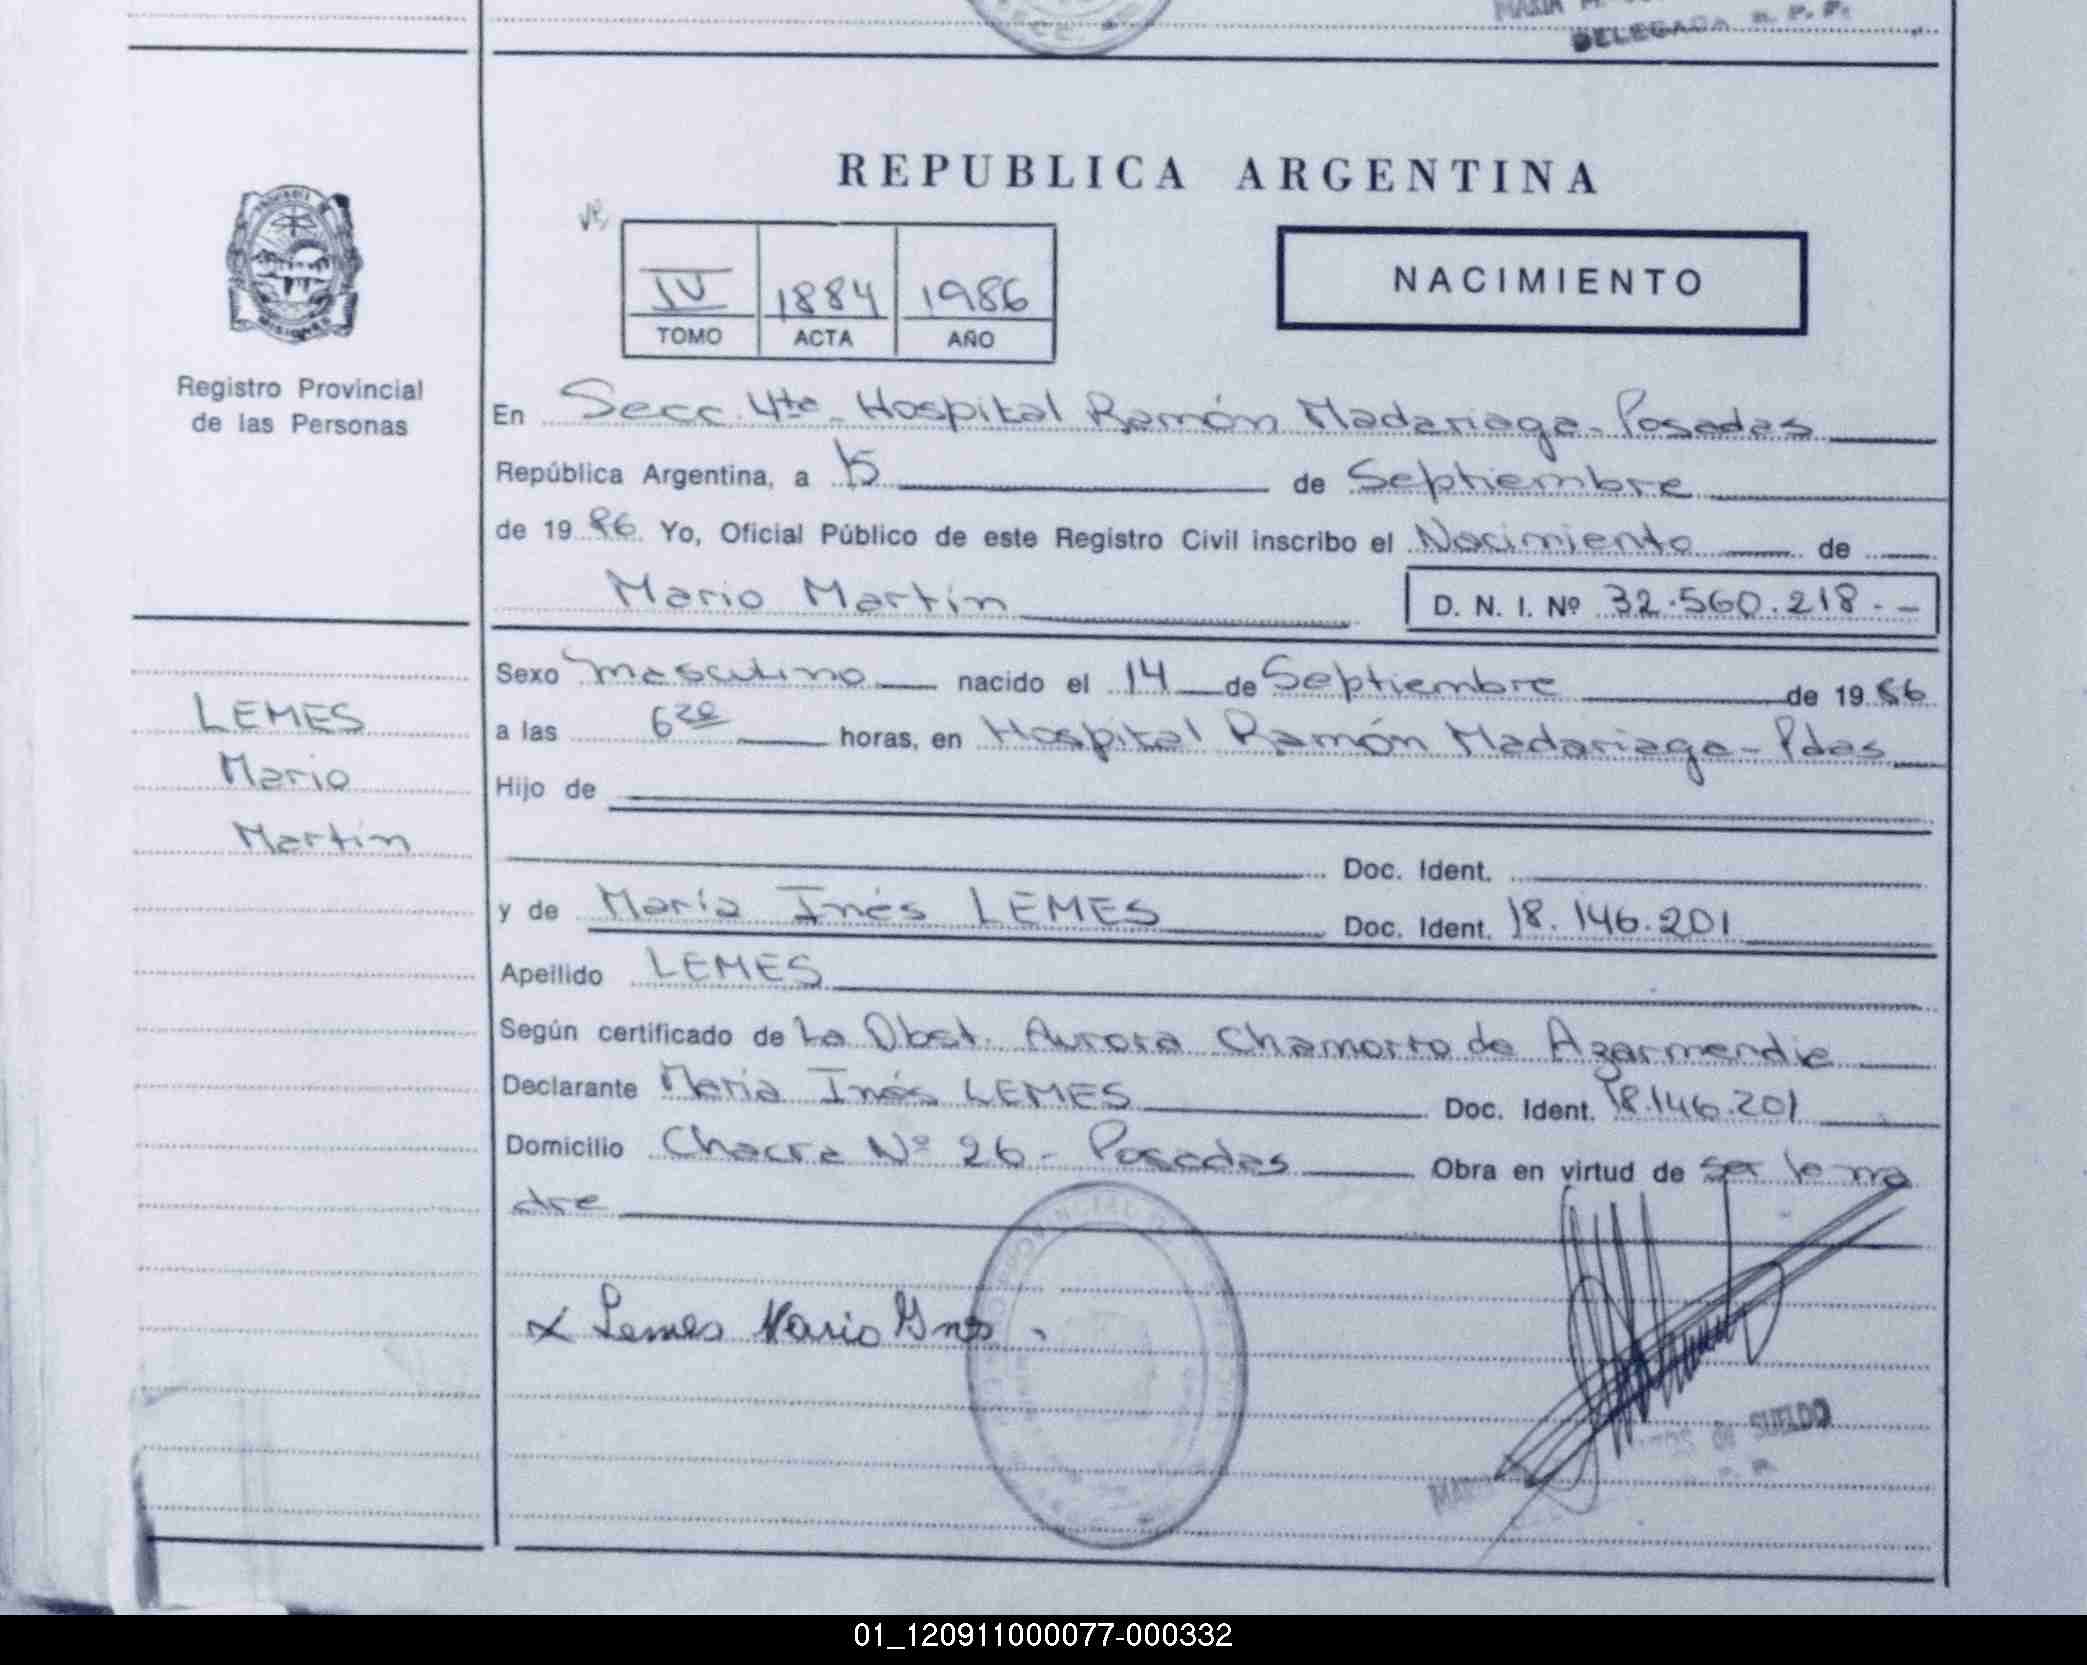 DELEGADA R. P. P.
REPUBLICA ARGENTINA
MISIONES
Registro Provincial
de las Personas
IV 1884 1986
TOMO ACTA AÑO
NACIMIENTO
En Secc. 4ta - Hospital Ramón Madariaga - Posadas
República Argentina, a 15 de Septiembre
de 19 86. Yo, Oficial Público de este Registro Civil inscribo el Nacimiento de
Mario Martín D. N. I. Nº 32.560.218.-
LEMES
Mario
Martín
Sexo masculino nacido el 14 de Septiembre de 19 86
a las 6 horas, en Hospital Ramón Madariaga - Pdas
Hijo de
Doc. Ident.
y de María Inés LEMES Doc. Ident. 18.146.201
Apellido LEMES
Según certificado de La Obst. Aurora Chamorro de Azarmendia
Declarante María Inés LEMES Doc. Ident. 18.146.201
Domicilio Chacra Nº 26 - Posadas Obra en virtud de ser la ma
dre
x Lemes Maria Ines
de SUELDO
01_120911000077-000332